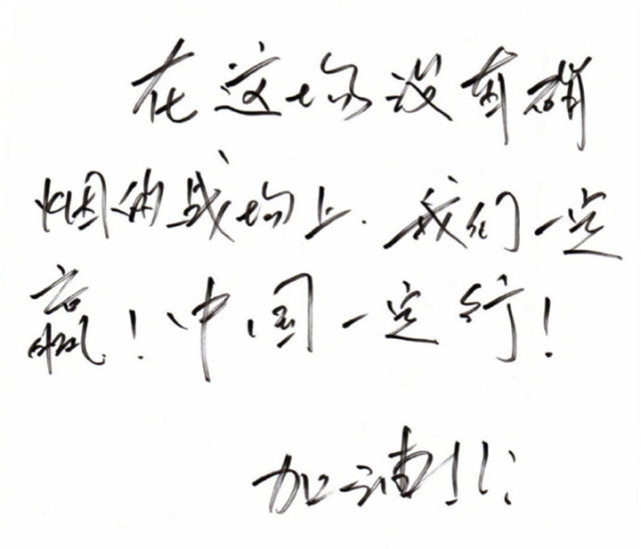 在这场没有硝
烟的战场上.我们一定
赢!中国一定行!
加油!!!